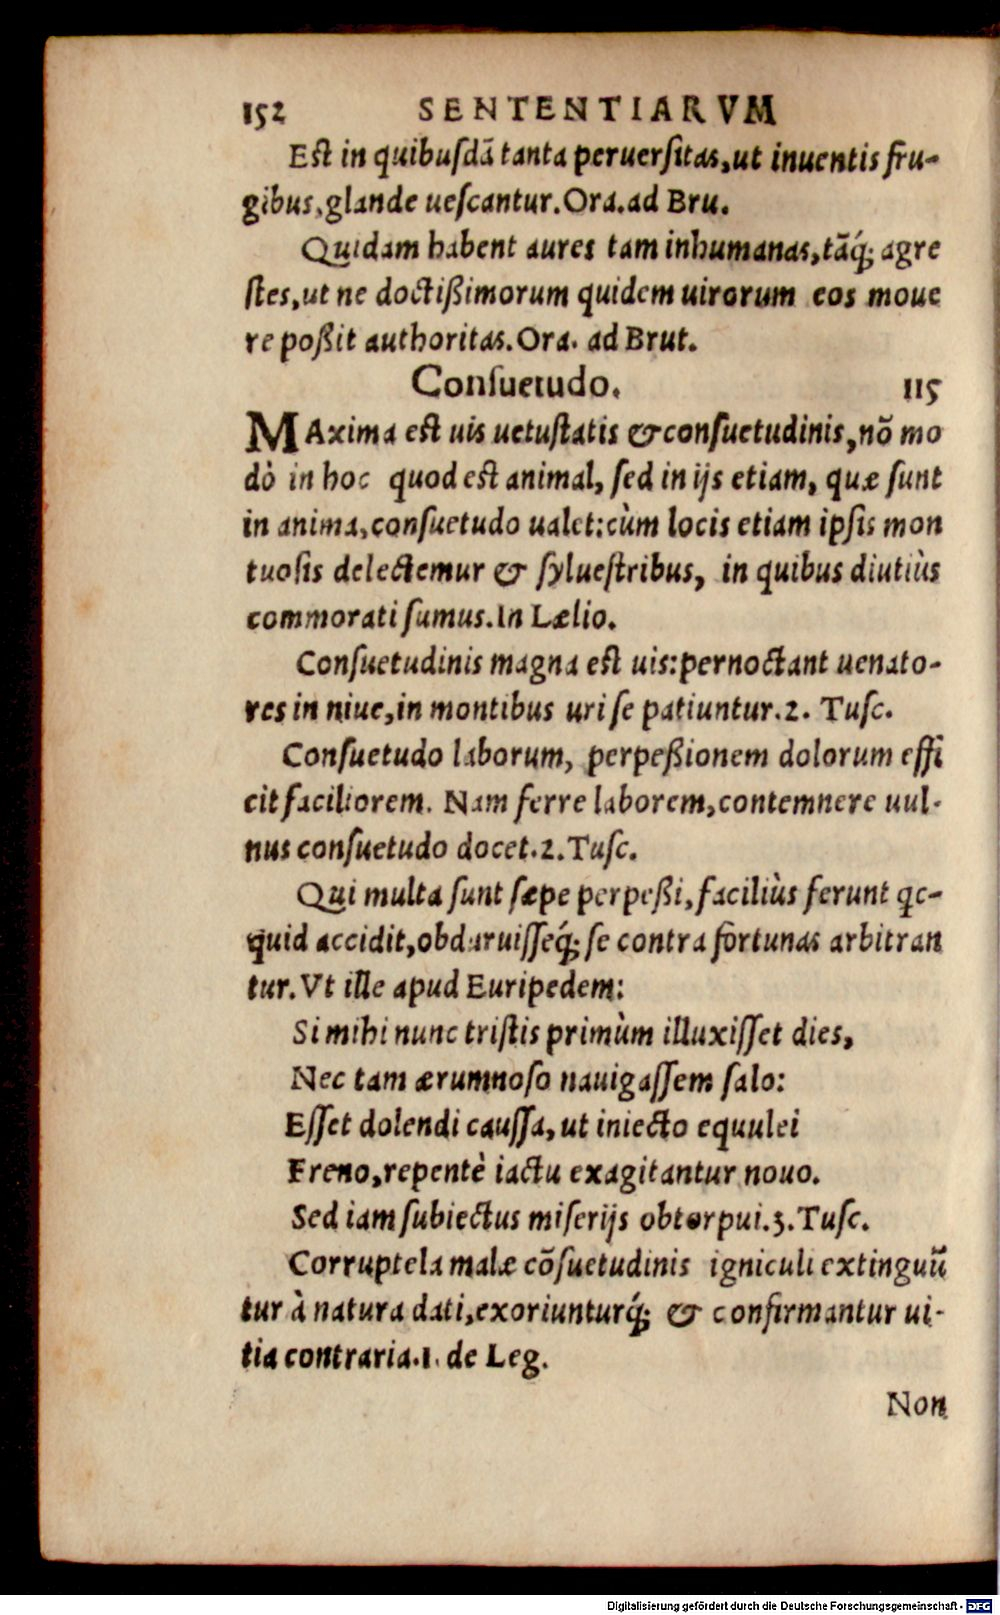 152 SENTENTIARVM
Est in quibusdā tanta peruersitas, ut inuentis fru-
gibus, glande uescantur. Ora. ad Bru.
Quidam habent aures tam inhumanas, tāq́; agre
stes, ut ne doctißimorum quidem uirorum eos moue
re poßit authoritas. Ora. ad Brut.
Consuetudo. 115
MAxima est uis uetustatis & consuetudinis, nō mo
dò in hoc quod est animal, sed in ijs etiam, quæ sunt
in anima, consuetudo ualet: cùm locis etiam ipsis mon
tuosis delectemur & syluestribus, in quibus diutiùs
commorati sumus. In Lælio.
Consuetudinis magna est uis: pernoctant uenato-
res in niue, in montibus uri se patiuntur. 2. Tusc.
Consuetudo laborum, perpeßionem dolorum effi
cit faciliorem. Nam ferre laborem, contemnere uul-
nus consuetudo docet. 2. Tusc.
Qui multa sunt sæpe perpeßi, faciliùs ferunt qc-
quid accidit, obdaruisseq́; se contra fortunas arbitran
tur. Vt ille apud Euripedem:
Si mihi nunc tristis primùm illuxisset dies,
Nec tam ærumnoso nauigassem salo:
Esset dolendi caussa, ut iniecto equulei
Freno, repentè iactu exagitantur nouo.
Sed iam subiectus miserijs obtorpui. 3. Tusc.
Corruptela malæ cōsuetudinis igniculi extinguū
tur à natura dati, exoriunturq́; & confirmantur ui-
tia contraria. 1. de Leg.
Non
Digitalisierung gefördert durch die Deutsche Forschungsgemeinschaft - DFG